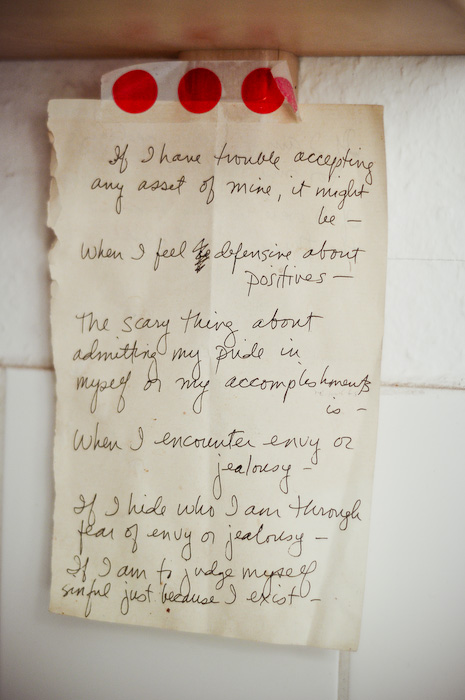 If I have trouble accepting
any asset of mine, it might
be —
When I feel defensive about
positives —
The scary thing about
admitting my pride in
myself or my accomplishments
is —
When I encounter envy or
jealousy —
If I hide who I am through
fear of envy or jealousy —
If I am to judge myself
sinful just because I exist —